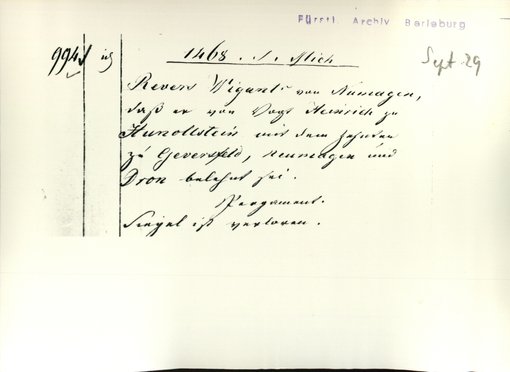 Fürstl. Archiv Berleburg
994
1468. S. Mich
Sept. 29
Revers Wigants von Numagen,
daß er von Vogt Heinrich zu
Hunoltstein mit dem Zehnten
zu Geversfeld, Neumagen und
Dron belehnt sei.
Pergament.
Siegel ist verloren.